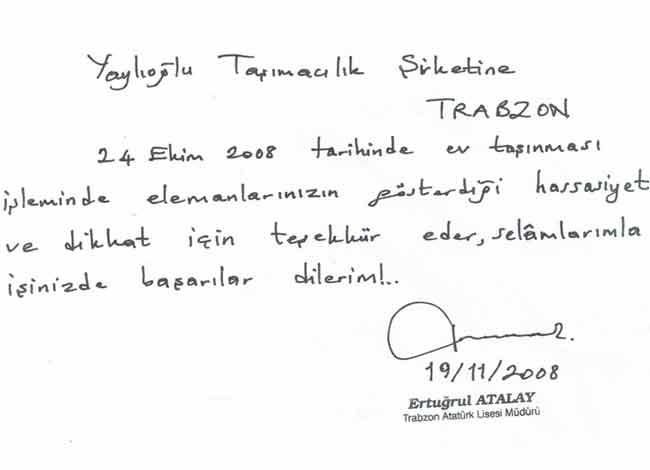 Yaylıoğlu Taşımacılık Şirketine
TRABZON
24 Ekim 2008 tarihinde ev taşınması
işleminde elemanlarınızın gösterdiği hassasiyet
ve dikkat için teşekkür eder, selâmlarımla
işinizde başarılar dilerim!..
19/11/2008
Ertuğrul ATALAY
Trabzon Atatürk Lisesi Müdürü